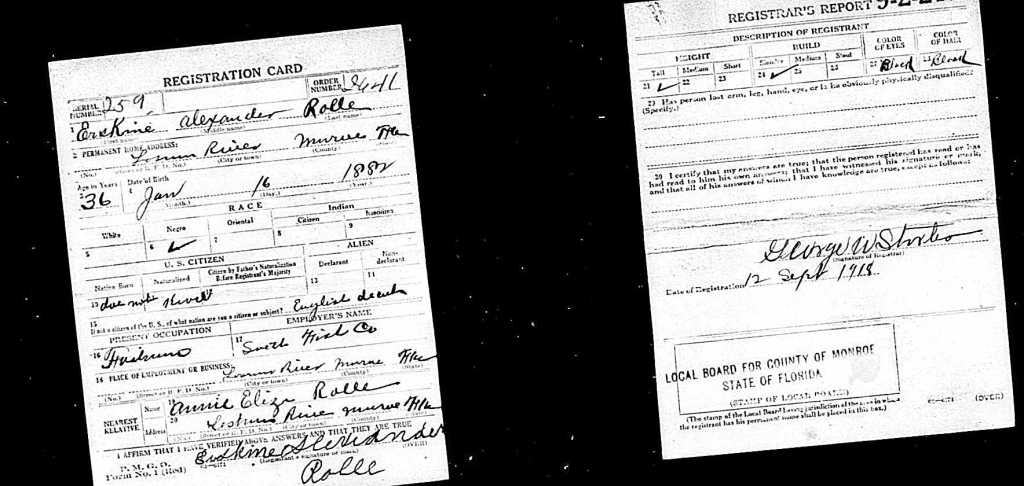 REGISTRATION CARD
SERIAL NUMBER 259 ORDER NUMBER
1 Erskine Alexander Rolle
(First name) (Middle name) (Last name)
2 PERMANENT HOME ADDRESS:
River Monroe Fla
(No.) (Street or R. F. D. No.) (City or town) (County) (State)
Age in Years Date of Birth
3 36 4 Jan 16 1882
(Month.) (Day.) (Year.)
RACE
White Negro Oriental Indian
Citizen Noncitizen
5 6 ✓ 7 8 9
U. S. CITIZEN ALIEN
Native Born Naturalized Citizen by Father's Naturalization Before Registrant's Majority Declarant Non-declarant
10 does not 12 11
15 If not a citizen of the U. S., of what nation are you a citizen or subject? English
PRESENT OCCUPATION EMPLOYER'S NAME
16 17 Fish Co
18 PLACE OF EMPLOYMENT OR BUSINESS:
River Monroe Fla
(No.) (Street or R. F. D. No.) (City or town) (County) (State)
NEAREST RELATIVE Name 19 Annie Eliza Rolle
Address 20 River Monroe Fla
(No.) (Street or R. F. D. No.) (City or town) (County) (State)
I AFFIRM THAT I HAVE VERIFIED ABOVE ANSWERS AND THAT THEY ARE TRUE
P. M. G. O.
Form No. 1 (Red) Erskine Alexander
(Registrant's signature or mark) (OVER)
Rolle
REGISTRAR'S REPORT
DESCRIPTION OF REGISTRANT
HEIGHT BUILD COLOR OF EYES COLOR OF HAIR
Tall Medium Short Slender Medium Stout
21 ✓ 22 23 24 ✓ 25 26 27 Black 28 Black
29 Has person lost arm, leg, hand, eye, or is he obviously physically disqualified?
(Specify.)
30 I certify that my answers are true; that the person registered has read or has
had read to him his own answers; that I have witnessed his signature or mark,
and that all of his answers of which I have knowledge are true, except as follows:
George W
(Signature of Registrar)
Date of Registration 12 Sept 1918
LOCAL BOARD FOR COUNTY OF MONROE
STATE OF FLORIDA
(STAMP OF LOCAL BOARD)
(The stamp of the Local Board having jurisdiction of the area in which
the registrant has his permanent home shall be placed in this box.)
(OVER)